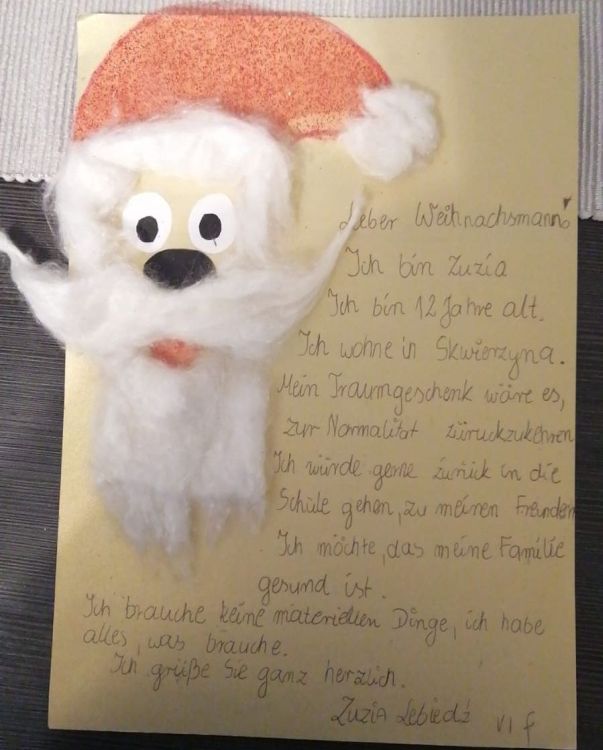 Leber Weihnachsmann
Ich bin Zuzia
Ich bin 12 Jahre alt.
Ich wohne in Skwierzyna.
Mein Traumgeschenk wäre es,
zur Normalität zürückzukehren
Ich würde gerne zurück in die
Schule gehen, zu meinen Freunden
Ich möchte, das meine Familie
gesund ist.
Ich brauche keine materiellen Dinge, ich habe
alles, was brauche.
Ich grüße Sie ganz herzlich.
Zuzia Lebiedź VI f